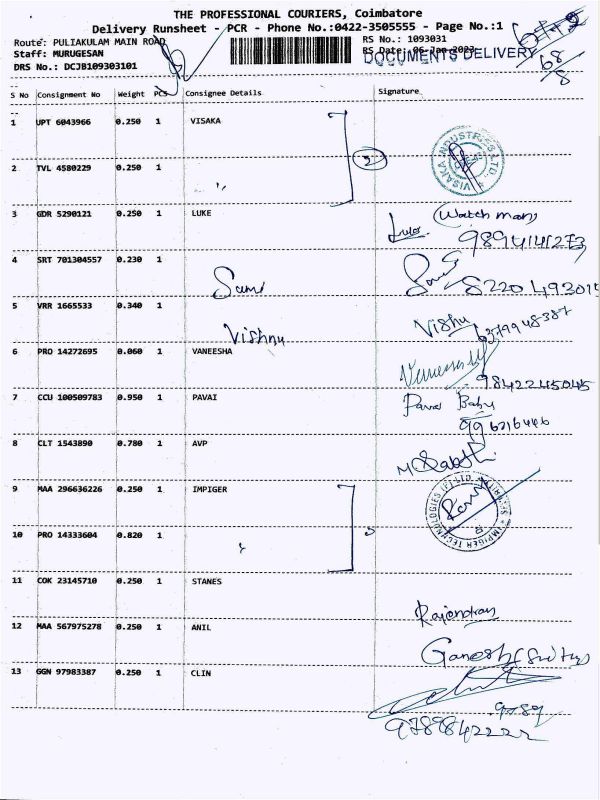 THE PROFESSIONAL COURIERS, Coimbatore
Delivery Runsheet - PCR - Phone No.:0422-3505555 - Page No.:1
Route: PULIAKULAM MAIN ROAD
RS No.: 1093031
Staff: MURUGESAN
RS Date: 06-Jan-2023
DOCUMENTS DELIVERY
DRS No.: DCJB109303101
68/8
S No Consignment No Weight PCS Consignee Details Signature
1 UPT 6043966 0.250 1 VISAKA
VISAKA INDUSTRIES LTD.
2 TVL 4580229 0.250 1 2
3 GDR 5290121 0.250 1 LUKE
(Watch man)
9894141273
4 SRT 701304557 0.230 1
Sami
8220 493015
5 VRR 1665533 0.340 1
Vishnu Vishu
6379948387
6 PRO 14272695 0.060 1 VANEESHA
9842245045
7 CCU 100509783 0.950 1 PAVAI
Babu
996216446
8 CLT 1543890 0.780 1 AVP
M Sabathi
9 MAA 296636226 0.250 1 IMPIGER
IMPIGER TECHNOLOGIES (P) LTD.
10 PRO 14333604 0.820 1
11 COK 23145710 0.250 1 STANES
Rajendran
12 MAA 567975278 0.250 1 ANIL
Ganesh
13 GGN 97983387 0.250 1 CLIN
9789
9789842222